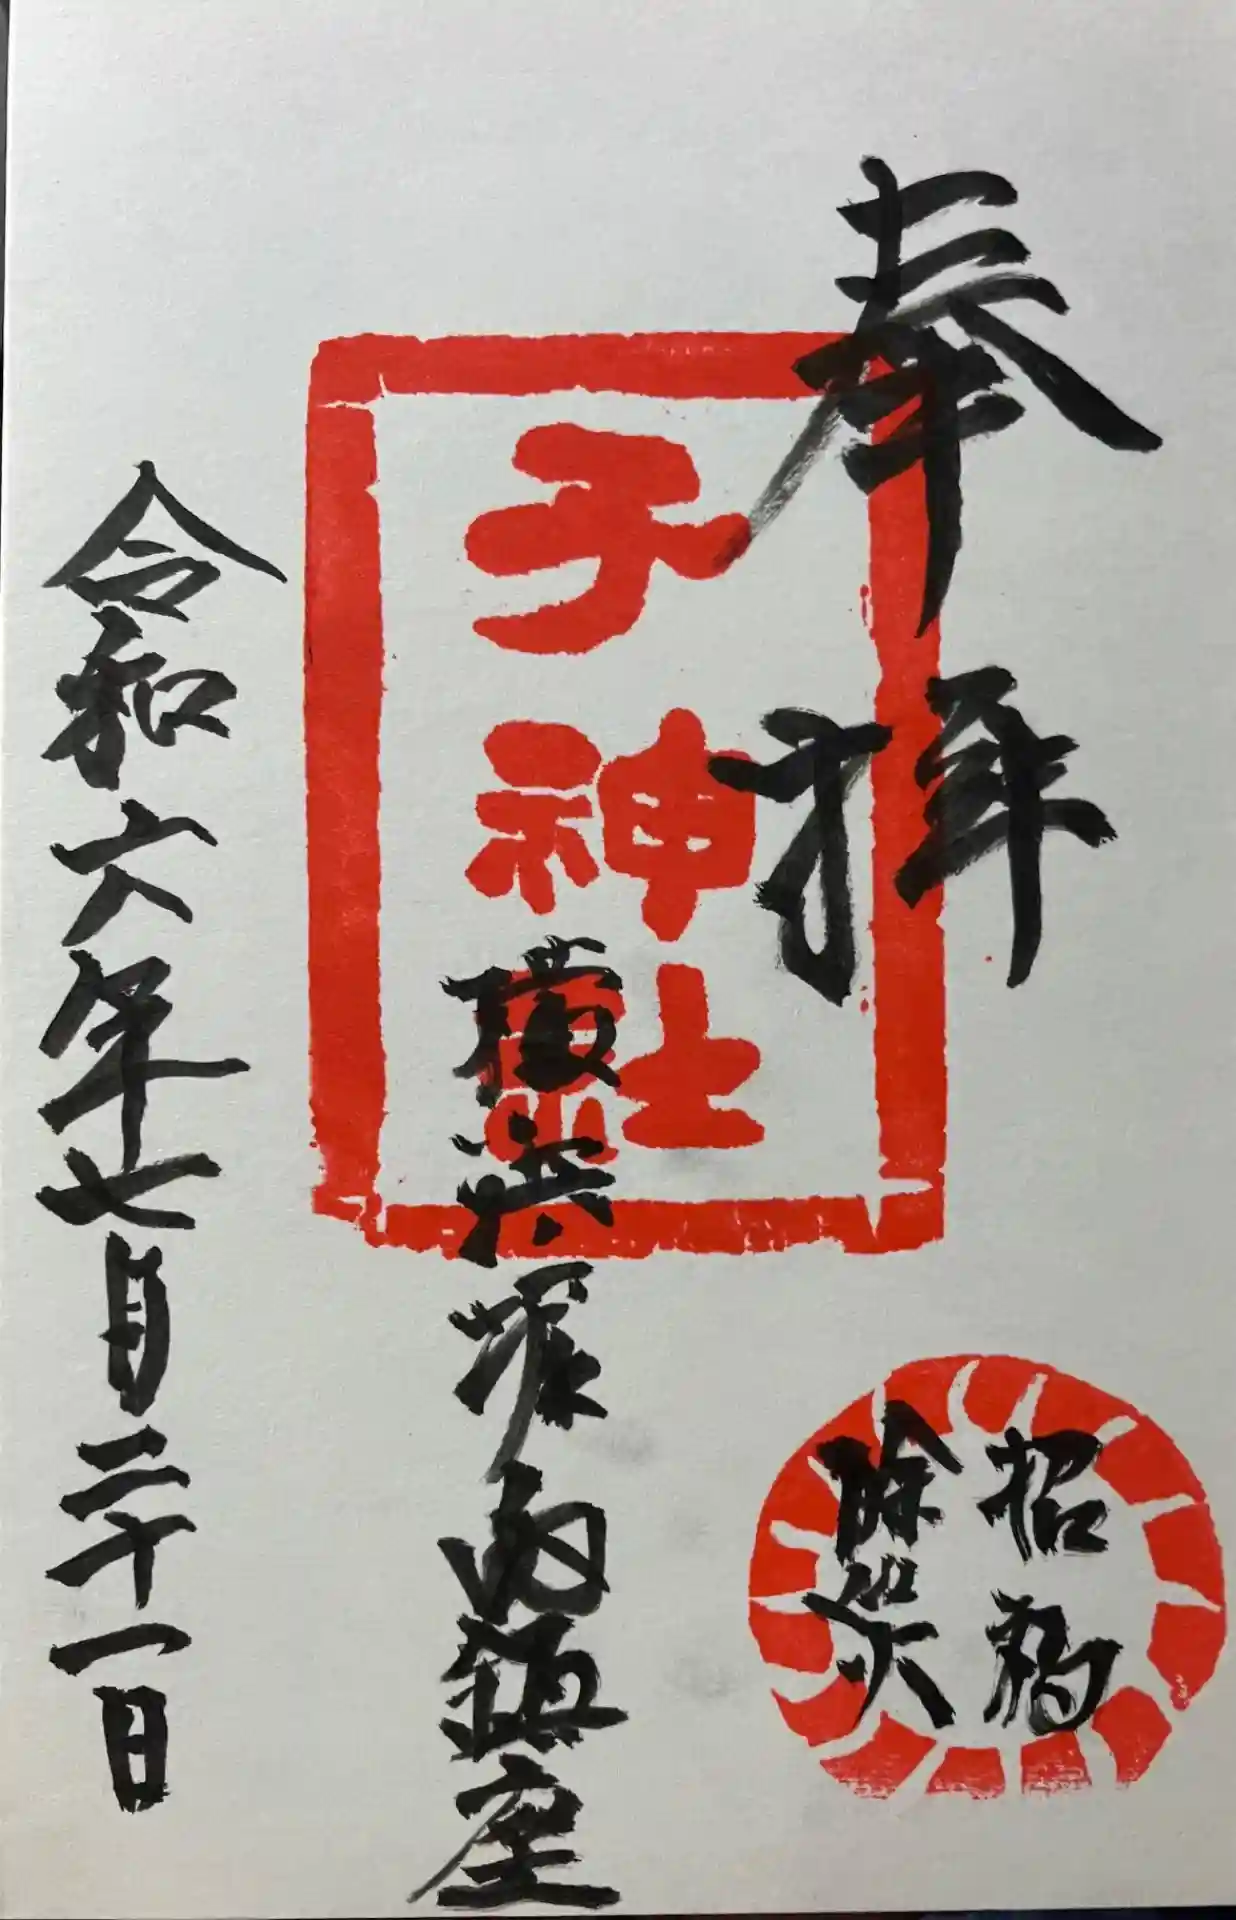 奉拝
招福
除災
子神社
横浜堀内鎮座
令和六年七月二十一日